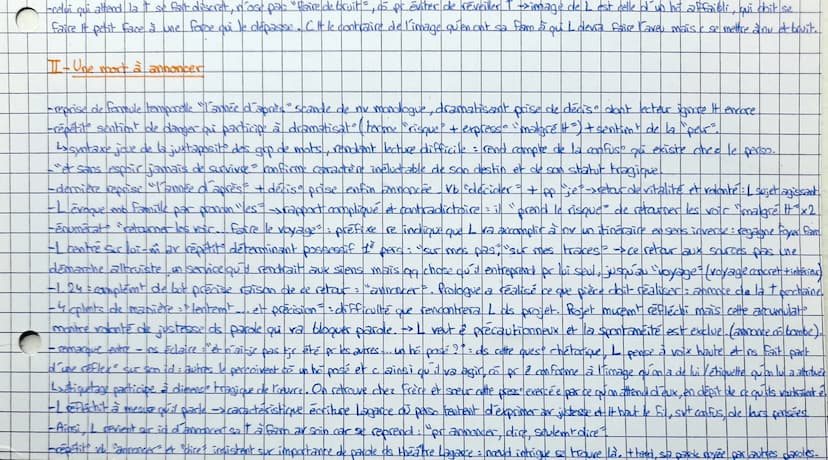 -celui qui attend la † se fait discret, n'ose pas "faire de bruit", co pr éviter de réveiller † → image de L est celle d'un h affaibli, qui doit se
faire tt petit face à une force qui le dépasse. C tt le contraire de l'image qu'en ont sa fam à qui L devra faire l'aveu mais c se mettre à nu et bruit.
II - Une mort à annoncer
-reprise de formule temporelle "l'année d'après" scande de nv monologue, dramatisant prise de décis° dont lecteur ignore tt encore
-répétit° sentimt de danger qui participe à dramatisat° (terme "risque" + express° "malgré tt") + sentimt de la "peur".
↳ syntaxe joue de la juxtaposit° des grp de mots, rendant lecture difficile = rend compte de la confus° qui existe chez le perso.
-"et sans espoir jamais de survivre" confirme caractère inéluctable de son destin et de son statut tragique.
-dernière reprise "l'année d'après" + décis° prise enfin annoncée. Vb "décider" + pp "je" → retour de vitalité et volonté : L sujet agissant
-L évoque mb famille par pronom "les" → rapport compliqué et contradictoire : il "prend le risque" de retourner les voir "malgré tt" x2
-énumérat° "retourner les voir... faire le voyage" : préfixe re indique que L va accomplir à nv un itinéraire en sens inverse : regagne foyer fam
-L centré sur lui-m̂ ar répétit° déterminant possessif 1è pers : "sur mes pas", "sur mes traces" → ce retour aux sources pas une
démarche altruiste, un service qu'il rendrait aux siens mais qq chose qu'il entreprend pr lui seul, jusqu'au "voyage" (voyage concret + intérieur)
-l.24 : complémt de but précise raison de ce retour : "annoncer". Prologue a réalisé ce que pièce doit réaliser : annonce de la † prochaine.
-4 cplets de manière : "lentemt ... et précision" : difficulté que rencontrera L ds projet. Projet mûremt réfléchi mais cette accumulat°
montre volonté de justesse ds parole qui va bloquer parole. → L veut ê précautionneux et la spontanéité est exclue. (annonce co bombe).
-remarque entre - ns éclaire : "et n'ai-je pas tjs été pr les autres... un h posé ?" : ds cette quest° rhétorique, L pense à voix haute et ns fait part
d'une réflex° sur son id : autres le perçoivent co un h posé et c ainsi qu'il va agir, co pr ê conforme à l'image qu'on a de lui / étiquette qu'on lui a attribuée
↳ étiquetage participe à dimens° tragique de l'œuvre. On retrouve chez frère et sœur cette press° exercée par ce qu'on attend d'eux, en dépit de ce qu'ils voudraient ê.
-L réfléchit à mesure qu'il parle → caractéristique écriture Lagarce où perso tentent d'exprimer av justesse et tt haut le fil, svt confus, de leurs pensées.
-Ainsi, L revient sr id d'annoncer sa † à fam av soin car se reprend : "pr annoncer, dire, seulemt dire"
-répétit° vb "annoncer" et "dire" insistent sur importance de parole ds théâtre Lagarce : nœud intrigue se trouve là. + tard, sa parole noyée par autres paroles.